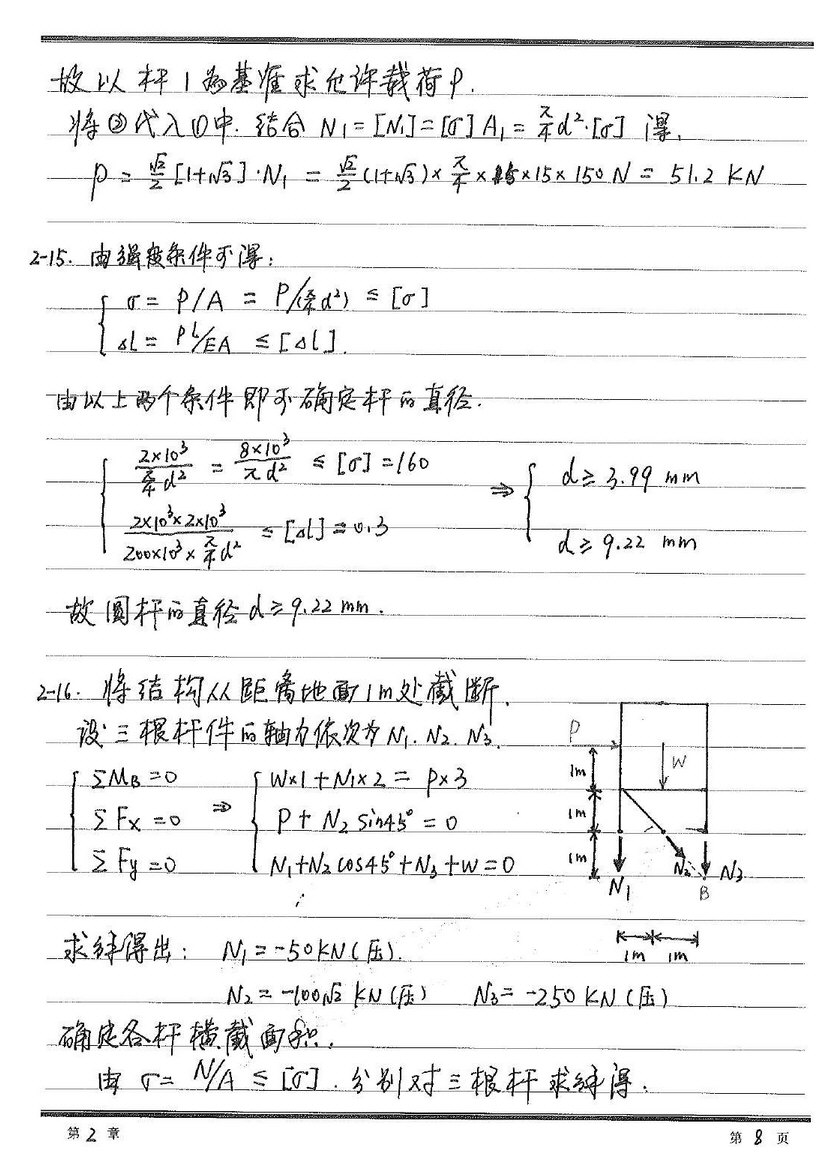 故以杆1为基准求允许载荷P.
将②代入①中. 结合 N₁=[N₁]=[σ]A₁=π/4 d²·[σ] 得,
P = √2/2 [1+√3]·N₁ = √2/2 (1+√3)× π/4 × 15×15×150 N = 51.2 KN
2-15. 由强度条件可得:
σ = P/A = P/(π/4 d²) ≤ [σ]
ΔL = PL/EA ≤ [ΔL].
由以上两个条件即可确定杆的直径.
2×10³/(π/4 d²) = 8×10³/(πd²) ≤ [σ]=160 ⇒ d≥3.99 mm
2×10³×2×10³/(200×10³×π/4 d²) ≤ [ΔL]=0.3 d≥9.22 mm
故圆杆的直径 d≥9.22 mm.
2-16. 将结构从距离地面1m处截断.
设三根杆件的轴力依次为 N₁. N₂. N₃.
ΣM_B=0 ⇒ W×1+N₁×2 = P×3
ΣFx=0 P+N₂ sin45°=0
ΣFy=0 N₁+N₂cos45°+N₃+W=0
P
W
1m
1m
1m
N₁ N₂ B N₃
1m 1m
求解得出: N₁=-50KN(压).
N₂=-100√2 KN(压) N₃=-250KN(压)
确定各杆横截面积.
由 σ=N/A ≤[σ]. 分别对三根杆求解得:
第 2 章 第 8 页